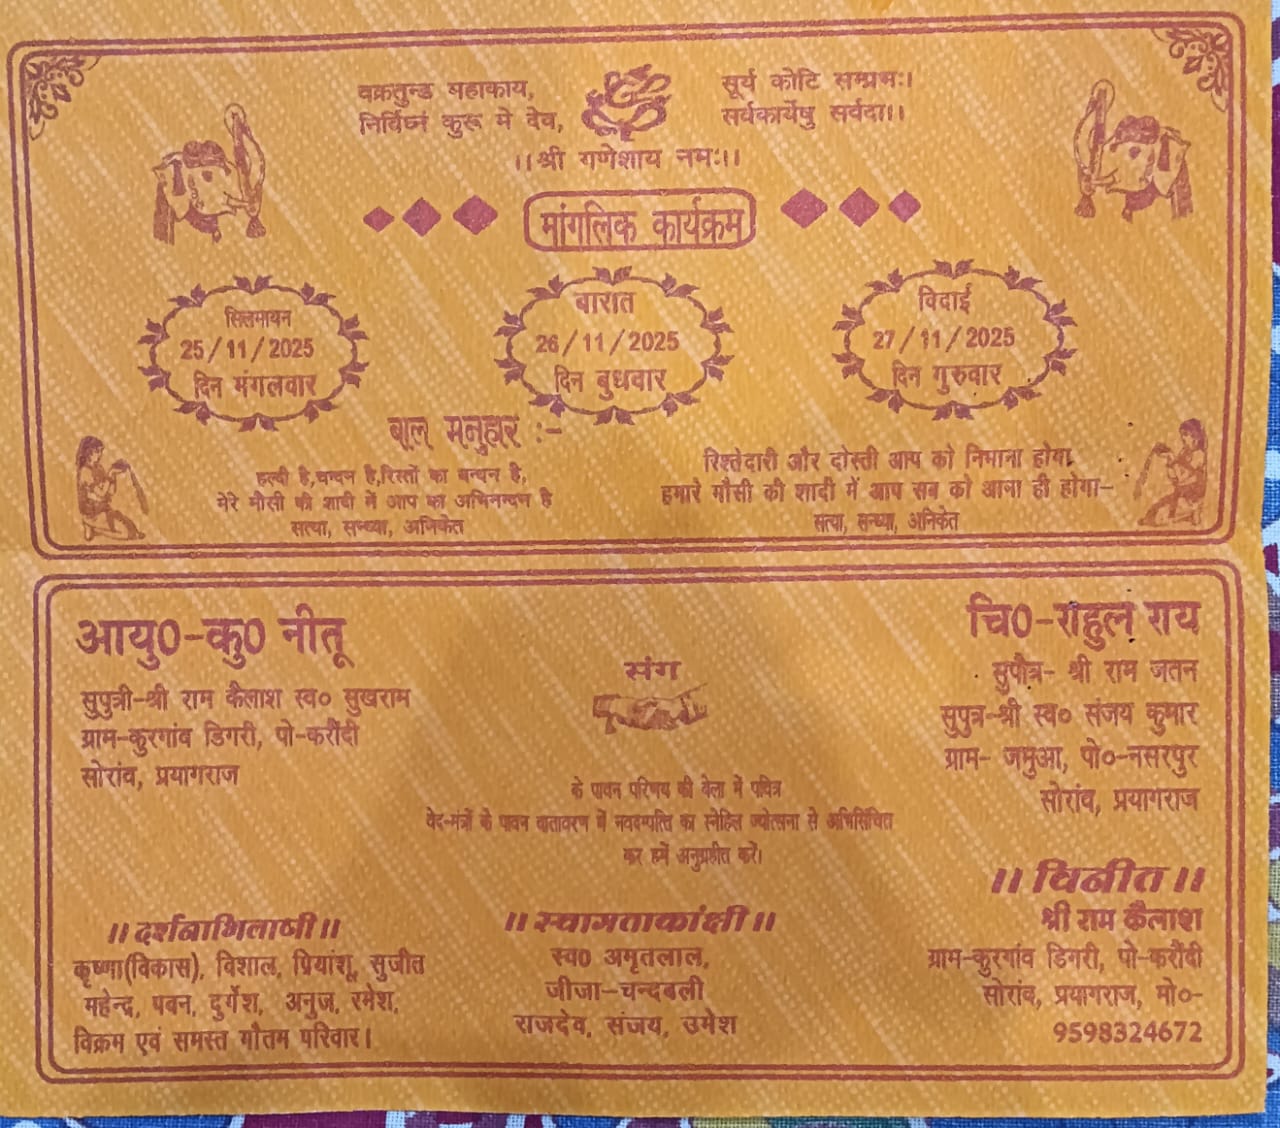 वक्रतुन्ड महाकाय,
सूर्य कोटि सम्प्रभः।
निर्विघ्नं कुरू मे देव,
सर्यकार्येषु सर्वदा।।
।।श्री गणेशाय नमः।।
मांगलिक कार्यक्रम
सिलमायन
25/11/2025
दिन मंगलवार
बारात
26/11/2025
दिन बुधवार
विदाई
27/11/2025
दिन गुरुवार
बाल मनुहार :-
हल्दी है,चन्दन है,रिस्तों का बन्धन है,
मेरे मौसी की शादी में आप का अभिनन्दन है
सत्या, सन्ध्या, अनिकेत
रिश्तेदारी और दोस्ती आप को निभाना होगा,
हमारे मौसी की शादी में आप सब को आना ही होगा-
सत्या, सन्ध्या, अनिकेत
आयु0-कु0 नीतू
सुपुत्री-श्री राम कैलाश स्व० सुखराम
ग्राम-कुरगांव डिगरी, पो-करौंदी
सोरांव, प्रयागराज
संग
चि0-राहुल राय
सुपौत्र- श्री राम जतन
सुपुत्र-श्री स्व० संजय कुमार
ग्राम- जमुआ, पो०-नसरपुर
सोरांव, प्रयागराज
के पावन परिणय की बेला में पवित्र
वेद-मंत्रों के पावन वातावरण में नवदम्पत्ति का स्नेहिल ज्योत्सना से अभिसिंचित
कर हमें अनुग्रहीत करें।
।।दर्शनाभिलाषी।।
कृष्णा(विकास), विशाल, प्रियांशू, सुजीत
महेन्द्र, पवन, दुर्गेश, अनुज, रमेश,
विक्रम एवं समस्त गौतम परिवार।
।।स्वागताकांक्षी।।
स्व0 अमृतलाल,
जीजा-चन्दबली
राजदेव, संजय, उमेश
।। विनीत ।।
श्री राम कैलाश
ग्राम-कुरगांव डिगरी, पो-करौंदी
सोरांव, प्रयागराज, मो०-
9598324672